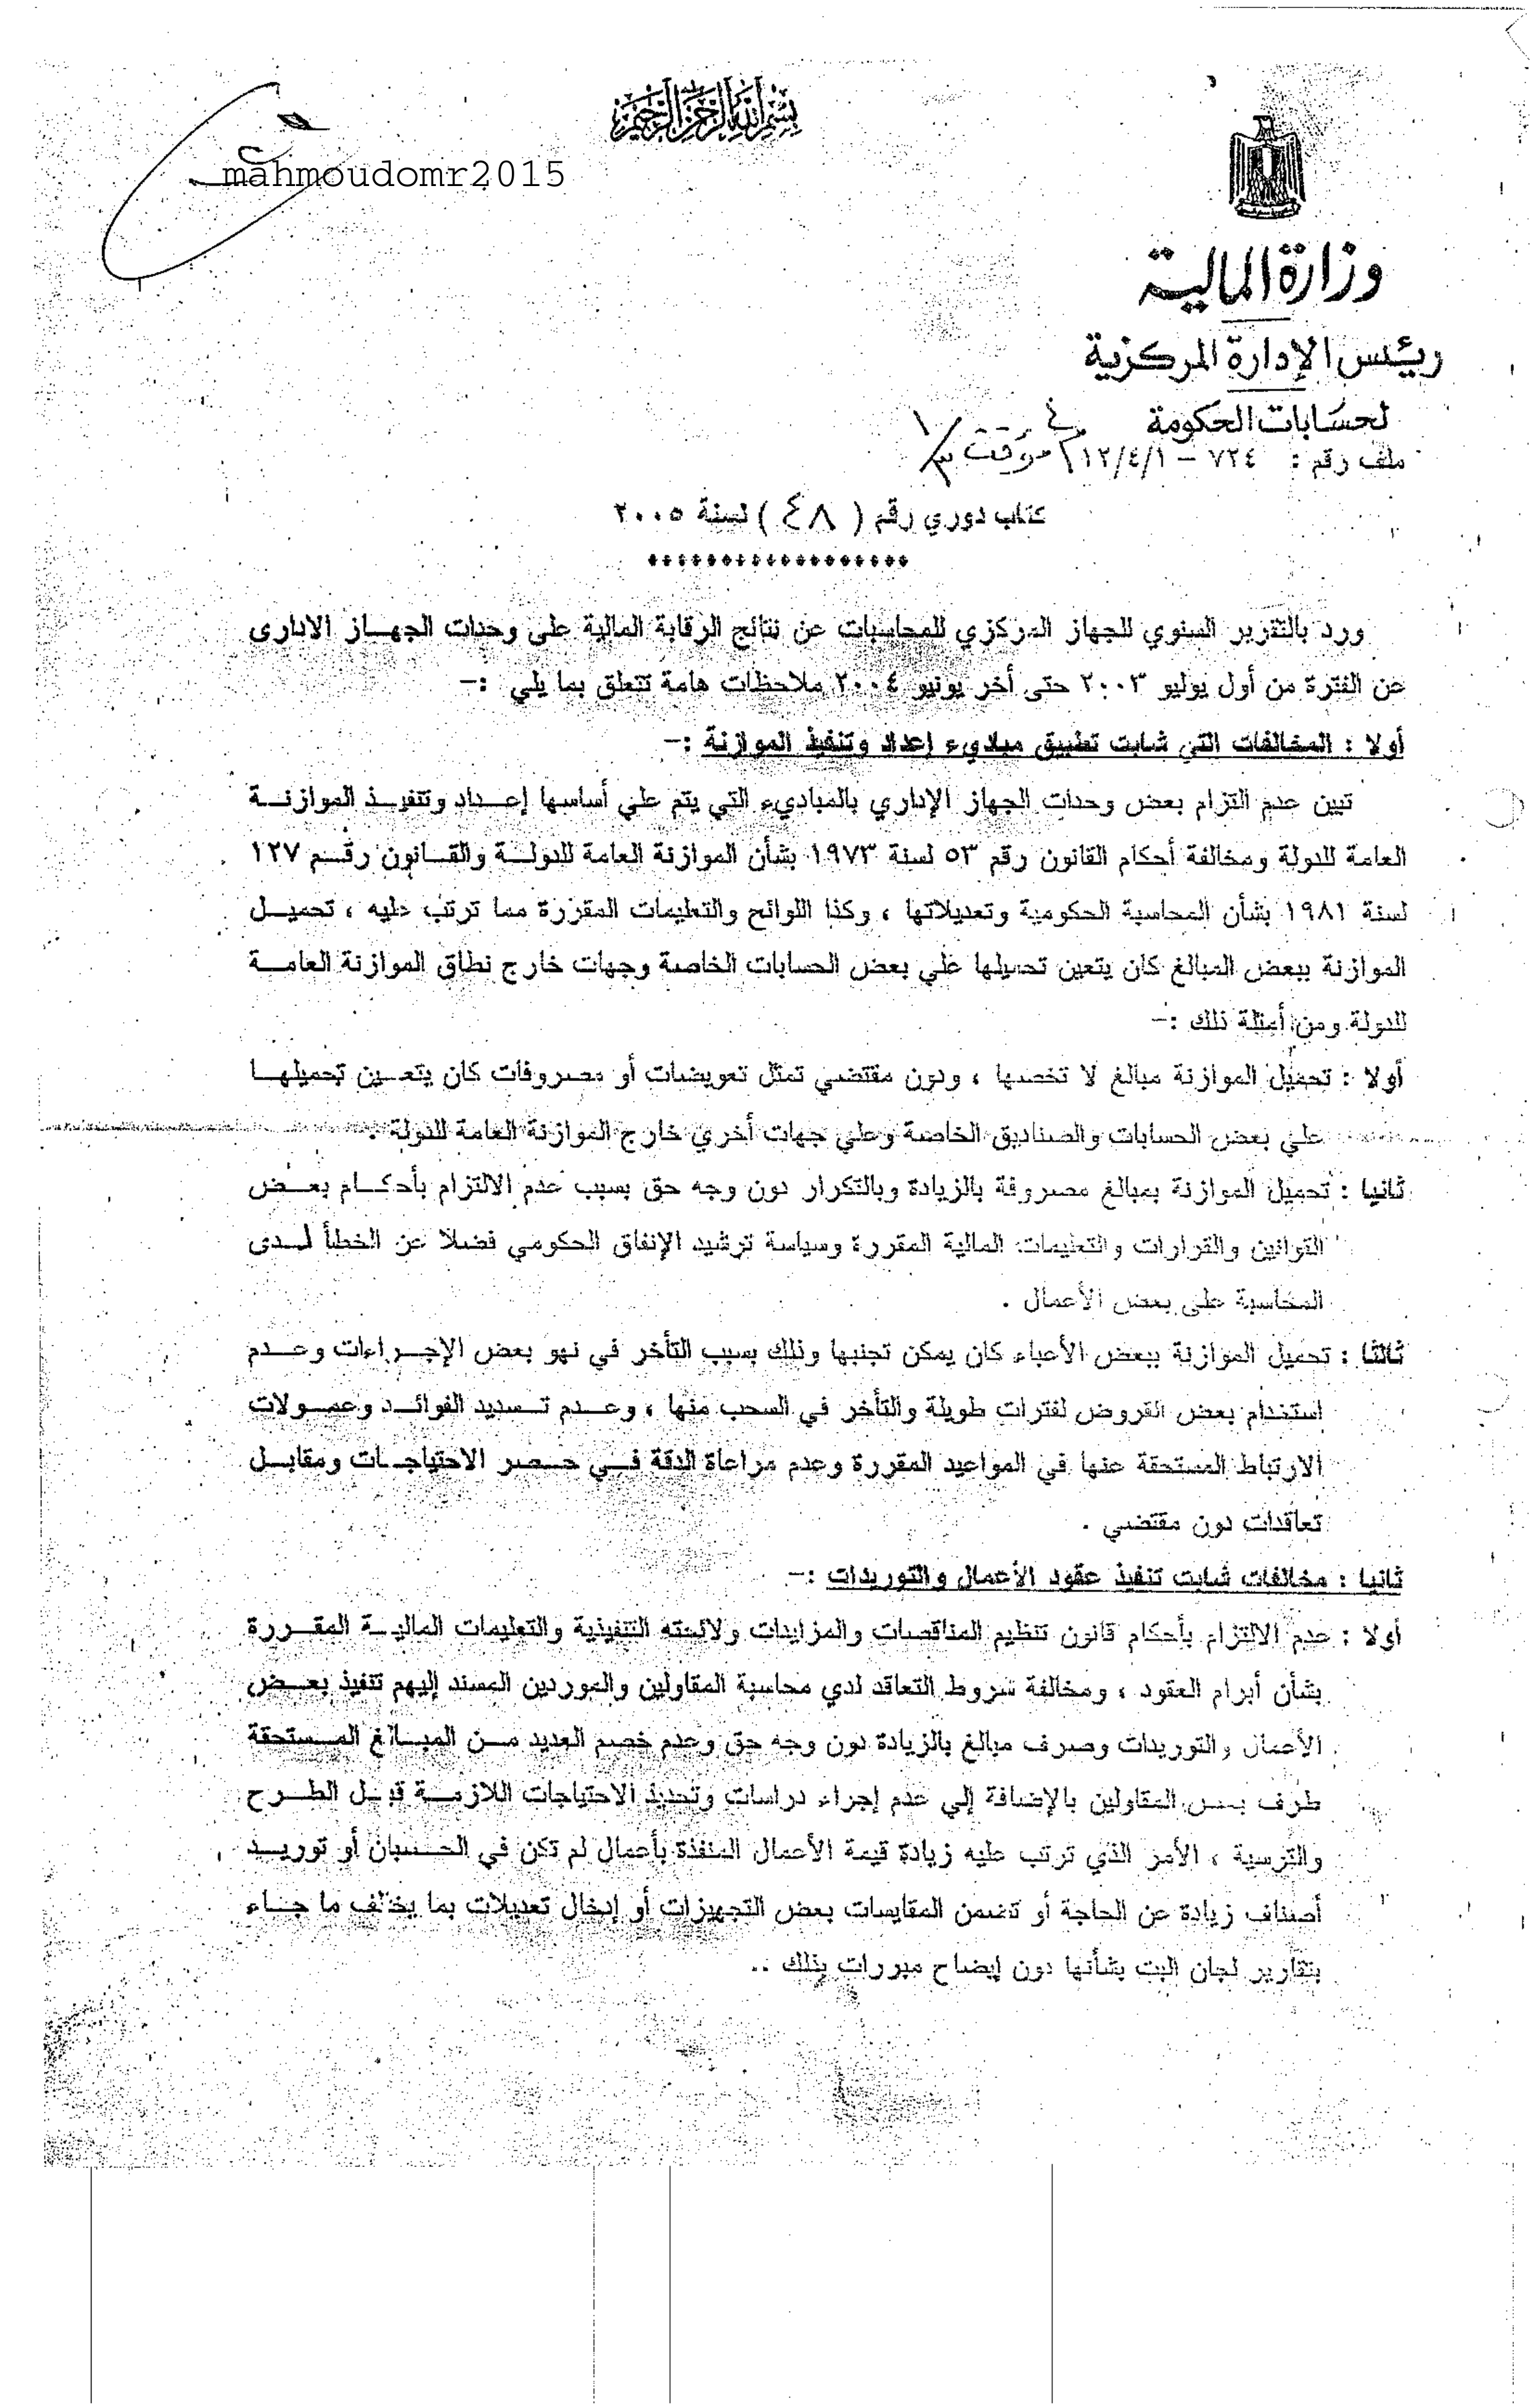 بسم الله الرحمن الرحيم
mahmoudomr2015
وزارة المالية
رئيس الإدارة المركزية
لحسابات الحكومة
ملف رقم : ٧٢٤ – ١٢/٤/١ مؤقت
كتاب دوري رقم ( ٤٨ ) لسنة ٢٠٠٥
******************
ورد بالتقرير السنوي للجهاز المركزي للمحاسبات عن نتائج الرقابة المالية على وحدات الجهاز الادارى
عن الفترة من أول يوليو ٢٠٠٣ حتى أخر يونيو ٢٠٠٤ ملاحظات هامة تتعلق بما يلي :–
أولا : المخالفات التي شابت تطبيق مباديء إعداد وتنفيذ الموازنة :–
تبين عدم التزام بعض وحدات الجهاز الإداري بالمباديء التي يتم علي أساسها إعداد وتنفيذ الموازنة
العامة للدولة ومخالفة أحكام القانون رقم ٥٣ لسنة ١٩٧٣ بشأن الموازنة العامة للدولة والقانون رقم ١٢٧
لسنة ١٩٨١ بشأن المحاسبة الحكومية وتعديلاتها ، وكذا اللوائح والتعليمات المقررة مما ترتب عليه ، تحميل
الموازنة ببعض المبالغ كان يتعين تحميلها علي بعض الحسابات الخاصة وجهات خارج نطاق الموازنة العامة
للدولة ومن أمثلة ذلك :–
أولا : تحميل الموازنة مبالغ لا تخصها ، ودون مقتضي تمثل تعويضات أو مصروفات كان يتعين تحميلها
علي بعض الحسابات والصناديق الخاصة وعلي جهات أخري خارج الموازنة العامة للدولة .
ثانيا : تحميل الموازنة بمبالغ مصروفة بالزيادة وبالتكرار دون وجه حق بسبب عدم الالتزام بأحكام بعض
القوانين والقرارات والتعليمات المالية المقررة وسياسة ترشيد الإنفاق الحكومي فضلا عن الخطأ لدى
المحاسبة على بعض الأعمال .
ثالثا : تحميل الموازنة ببعض الأعباء كان يمكن تجنبها وذلك بسبب التأخر في نهو بعض الإجراءات وعدم
استخدام بعض القروض لفترات طويلة والتأخر في السحب منها ، وعدم تسديد الفوائد وعمولات
الارتباط المستحقة عنها في المواعيد المقررة وعدم مراعاة الدقة في حصر الاحتياجات ومقابل
تعاقدات دون مقتضي .
ثانيا : مخالفات شابت تنفيذ عقود الأعمال والتوريدات :–
أولا : عدم الالتزام بأحكام قانون تنظيم المناقصات والمزايدات ولائحته التنفيذية والتعليمات المالية المقررة
بشأن أبرام العقود ، ومخالفة شروط التعاقد لدي محاسبة المقاولين والموردين المسند إليهم تنفيذ بعض
الأعمال والتوريدات وصرف مبالغ بالزيادة دون وجه حق وعدم خصم العديد من المبالغ المستحقة
طرف بعض المقاولين بالإضافة إلي عدم إجراء دراسات وتحديد الاحتياجات اللازمة قبل الطرح
والترسية ، الأمر الذي ترتب عليه زيادة قيمة الأعمال المنفذة بأعمال لم تكن في الحسبان أو توريد
أصناف زيادة عن الحاجة أو تضمن المقايسات بعض التجهيزات أو إدخال تعديلات بما يخالف ما جاء
بتقارير لجان البت بشأنها دون إيضاح مبررات بذلك ..